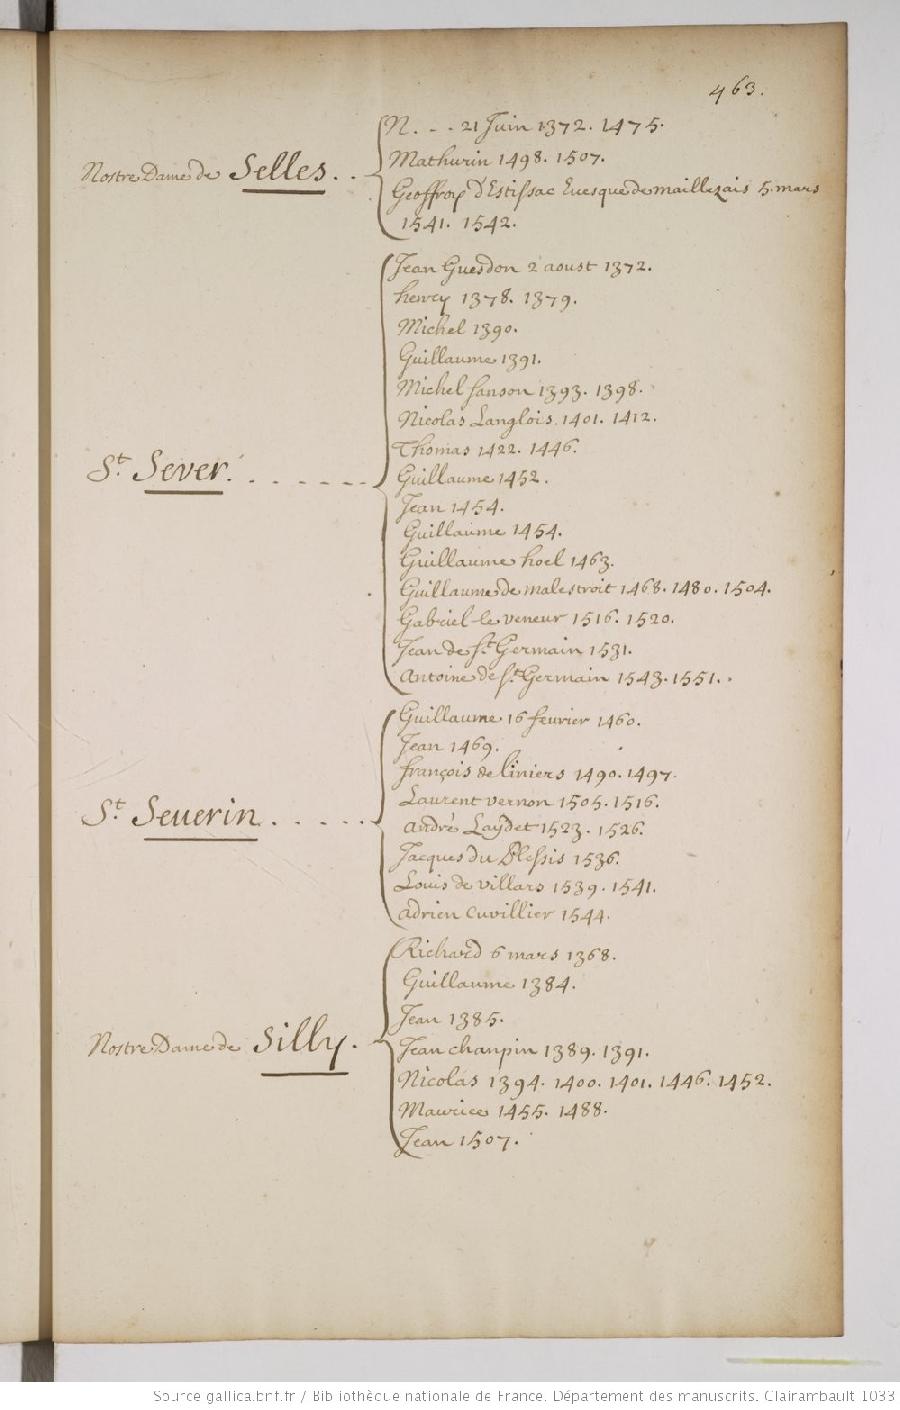 463.
Nostre Dame de Selles . .
N. . - - 21 Juin 1372. 1475.
Mathurin 1498. 1507.
Geoffroy d'Estissac Euesque de maillezais 5. mars
1541. 1542.
St. Sever. . - - - - -
Jean Guesdon 2 aoust 1372.
henry 1378. 1379.
Michel 1390.
Guillaume 1391.
Michel sanson 1393. 1398.
Nicolas Langlois. 1401. 1412.
Thomas 1422. 1446.
Guillaume 1452.
Jean 1454.
Guillaume 1454.
Guillaume hoel 1463.
Guillaume de malestroit 1468. 1480. 1504.
Gabriel-le veneur 1516. 1520.
Jean de St. Germain 1531.
Antoine de St. Germain 1543. 1551. .
St. Seuerin . . - - -
Guillaume 16 feurier 1460.
Jean 1469.
françois de liniers 1490. 1497.
Laurent vernon 1505. 1516.
andré Laydet 1523. 1526.
Jacques du Plessis 1536.
Louis de villars 1539. 1541.
adrien cuvillier 1544.
Nostre Dame de Silly.
Richard 6 mars 1368.
Guillaume 1384.
Jean 1385.
Jean chanpin 1389. 1391.
Nicolas 1394. 1400. 1401. 1446. 1452.
Maurice 1455. 1488.
Jean 1507.
Source gallica.bnf.fr / Bibliothèque nationale de France. Département des manuscrits. Clairambault 1033